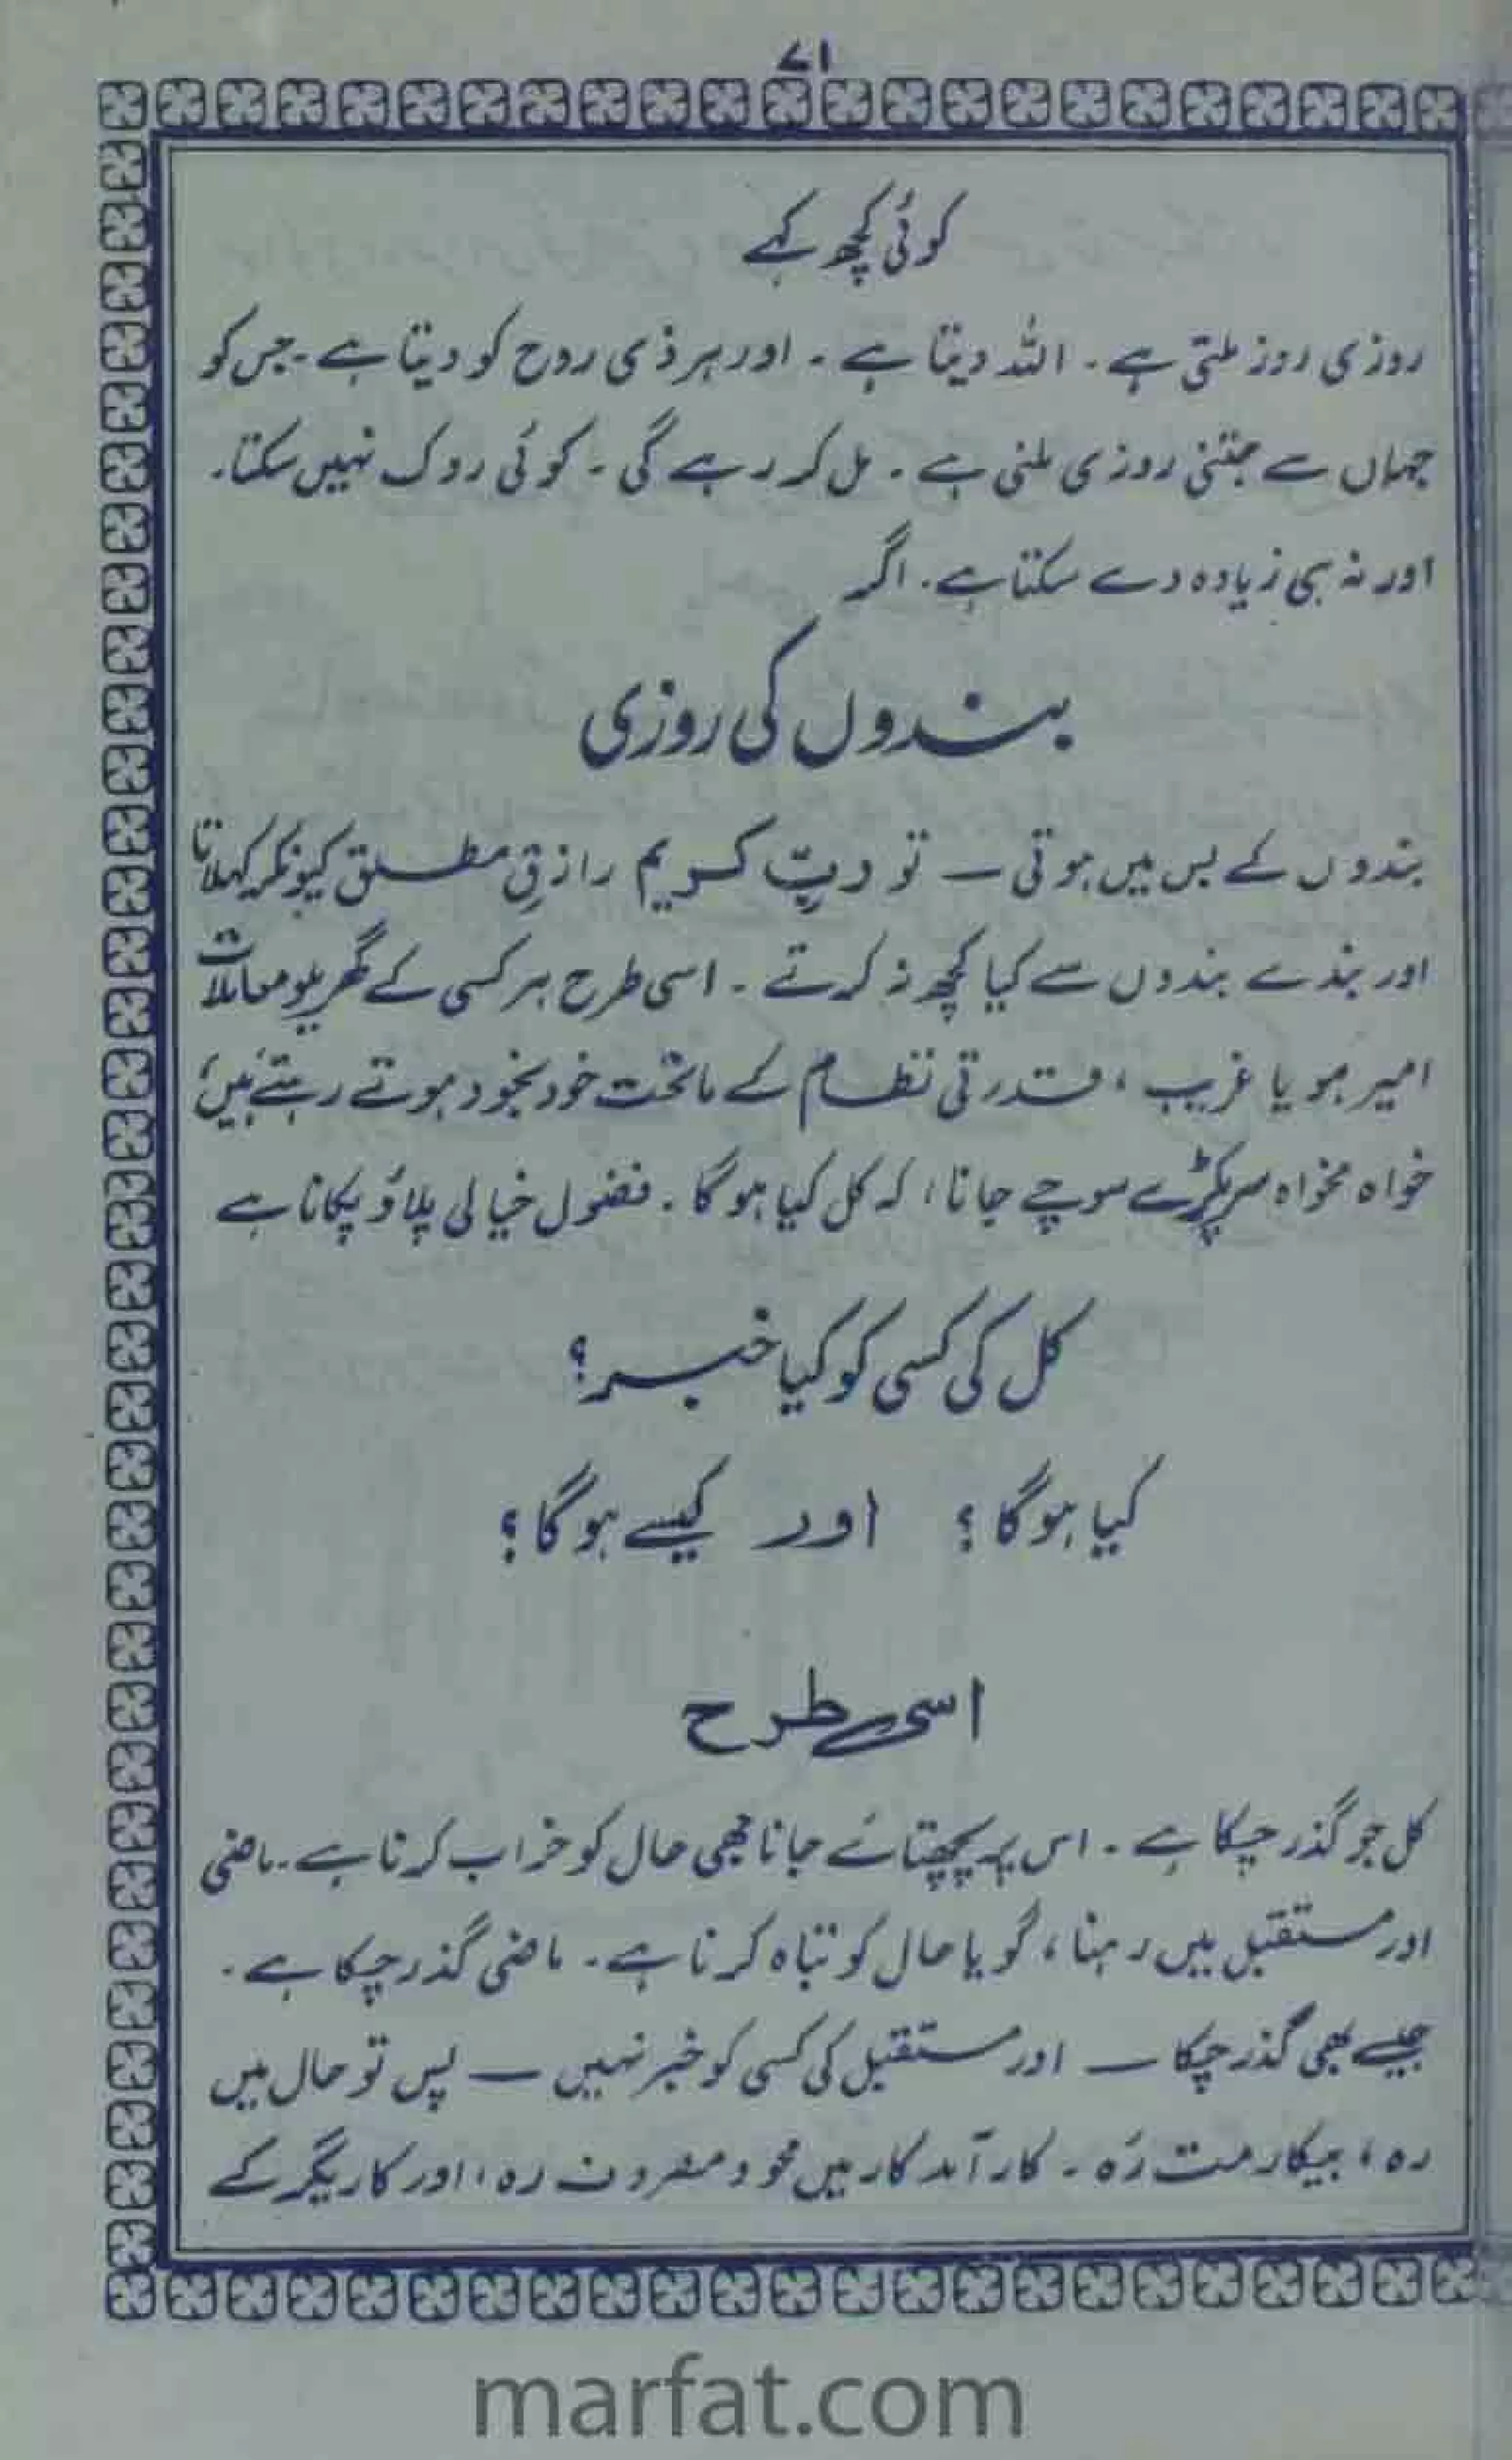 ۷۱
کوئی کچھ کہے
روزی روز ملتی ہے ۔ اللہ دیتا ہے ۔ اور ہر ذی روح کو دیتا ہے ۔ جس کو
جہاں سے جتنی روزی ملنی ہے ۔ مل کر رہے گی ۔ کوئی روک نہیں سکتا ۔
اور نہ ہی زیادہ دے سکتا ہے ۔ اگر
بندوں کی روزی
بندوں کے بس میں ہوتی ۔ تو ربِّ کریم رازقِ مطلق کیونکر کہلاتا
اور بندے بندوں سے کیا کچھ نہ کرتے ۔ اسی طرح ہر کسی کے گھریلو معاملات
امیر ہو یا غریب ، قدرتی نظام کے ماتحت خودبخود ہوتے رہتے ہیں ،
خواہ مخواہ سر پکڑے سوچے جانا ، کہ کل کیا ہو گا ۔ فضول خیالی پلاؤ پکانا ہے
کل کی کسی کو کیا خبر ؟
کیا ہو گا ؟ اور کیسے ہو گا ؟
اسی طرح
کل جو گذر چکا ہے ۔ اس پہ پچھتائے جانا بھی حال کو خراب کرنا ہے ۔ ماضی
اور مستقبل میں رہنا ، گویا حال کو تباہ کرنا ہے ۔ ماضی گذر چکا ہے ۔
جیسے بھی گذر چکا ۔ اور مستقبل کی کسی کو خبر نہیں ۔ پس تو حال میں
رہ ، بیکار مت رَہ ۔ کارآمد کار میں محو و مصروف رہ ، اور کاریگر کے
marfat.com